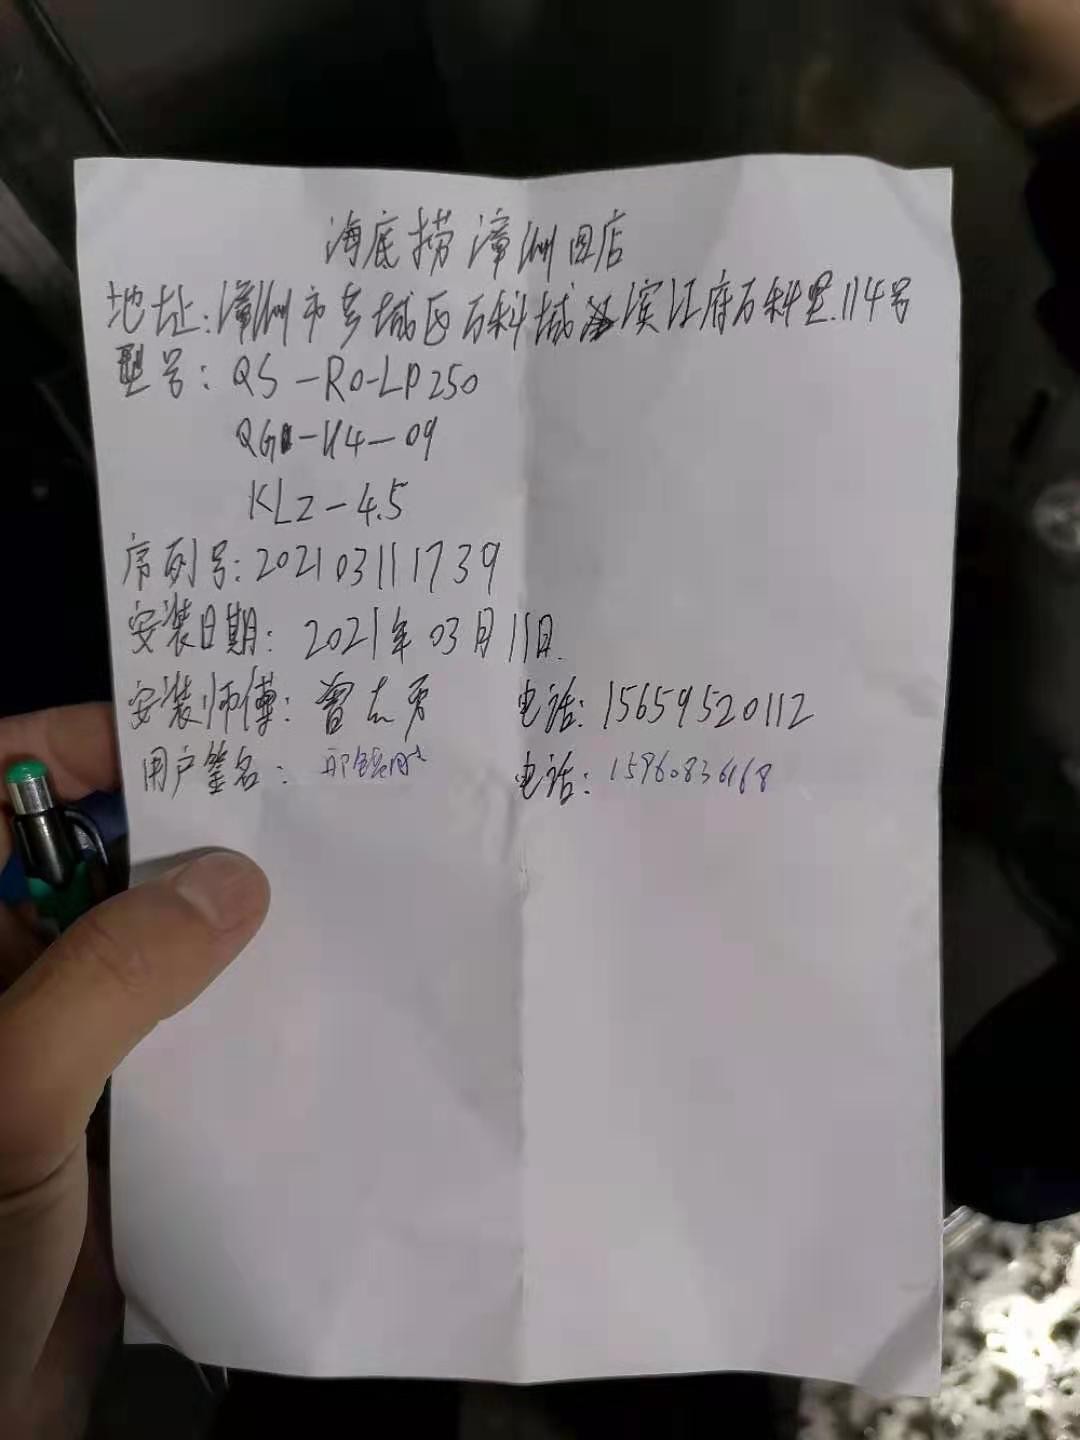 海底捞漳洲四店
地址:漳洲市芗城区万科城滨江府万科里.114号
型号:QS-RO-LP250
QG-U4-09
KLZ-4.5
序列号:202103111739
安装日期:2021年03月11日.
安装师傅:曾志勇 电话:15659520112
用户签名: 电话:15960836168